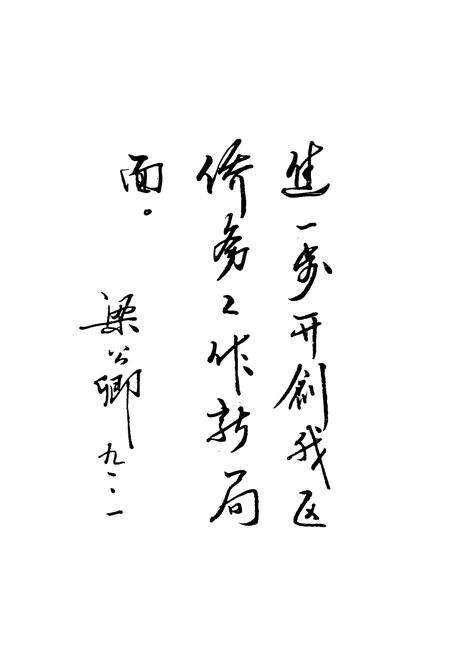 進一步开創我区
侨务工作新局
面。
梁公卿 九二.一